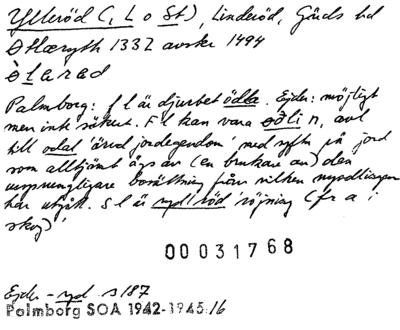 Ylleröd (, L o St), Linderöd, Gärds hd
Øllæryth 1332 avskr 1494
òlarad
Palmborg: fl är djurbet ödla. Ejder: möjligt
men inte säkert. Fl kan vara øðlin, avl
till odal 'ärvd jordegendom' med syftn på jord
som alltjämt ägs av (en brukare av) den
ursprungligare bosättning från vilken nyodlingen
har utgått. Sl är ryd röd 'röjning (fr a i
skog)'
00031768
Ejder -ryd s 187
Palmborg SOA 1942-1945:16